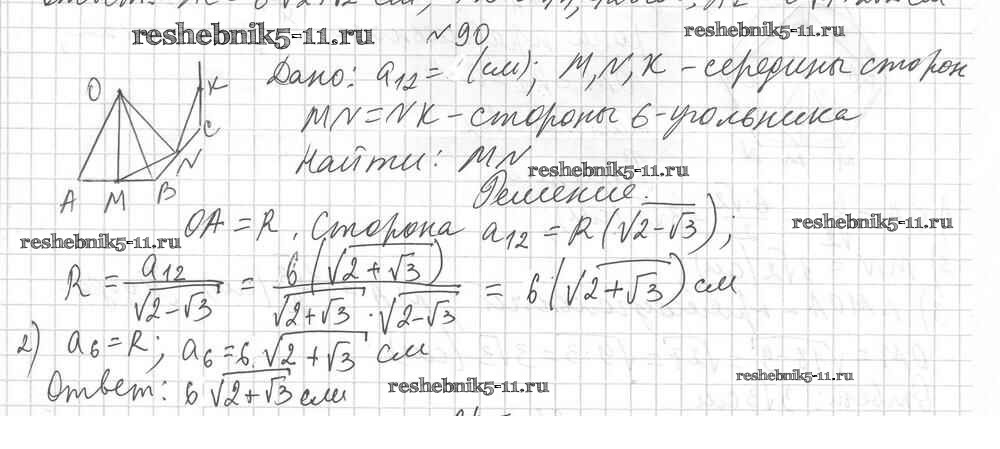 reshebnik5-11.ru № 90 reshebnik5-11.ru
Дано: a₁₂ = (см); M, N, K – середины сторон
MN = NK – стороны 6-угольника
Найти: MN reshebnik5-11.ru
Решение.
O K C N A M B
reshebnik5-11.ru OA = R. Сторона a₁₂ = R(√2-√3); reshebnik5-11.ru
R = a₁₂/√(2-√3) = 6(√(2+√3))/(√(2+√3) · √(2-√3)) = 6(√(2+√3)) см
2) a₆ = R; a₆ = 6√(2+√3) см
Ответ: 6√(2+√3) см reshebnik5-11.ru reshebnik5-11.ru